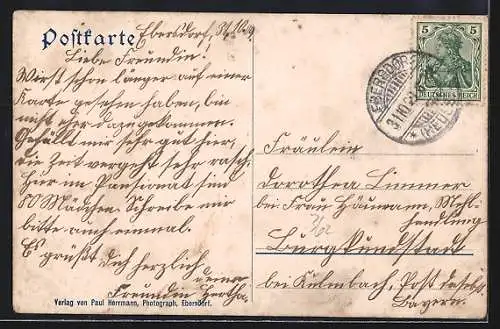 Postkarte
Ebersdorf, 31.10.
Liebe Freundin!
Wirst schon länger auf einer
Karte gesehen haben, bin
nicht eher dazugekommen.
Gefällt mir sehr gut hier,
die Zeit vergeht sehr rasch.
Hier im Pensionat sind
80 Mädchen. Schreibe mir
bitte auch einmal.
Es grüßt dich herzlich
deine
Freundin Hertha.
Verlag von Paul Herrmann, Photograph, Ebersdorf.
5 5
DEUTSCHES REICH
EBERSDORF
31.10.
Fräulein
Dorothea Limmer
bei Frau Häumann, Mehl-
handlung
Burgkundstadt
bei Kulmbach, Post daselbst
Bayern.